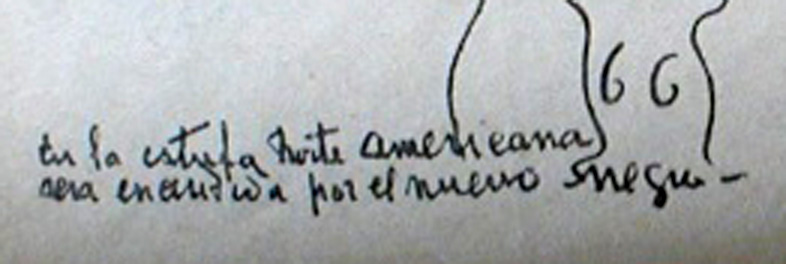 66
En la estufa Norte americana
sera encendida por el nuevo negro -